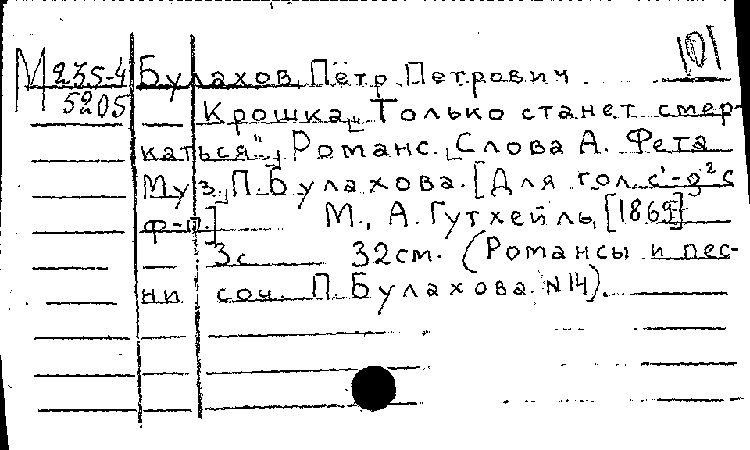 101
М 235-4 Булахов, Пётр Петрович
5205 Крошка, „Только станет смер-
каться", Романс. Слова А. Фета
Муз. П. Булахова. [Для гол. с'-g² с
ф-п.] М., А. Гутхейль, [1869]
3с 32см. (Романсы и пес-
ни соч. П. Булахова. N 14).